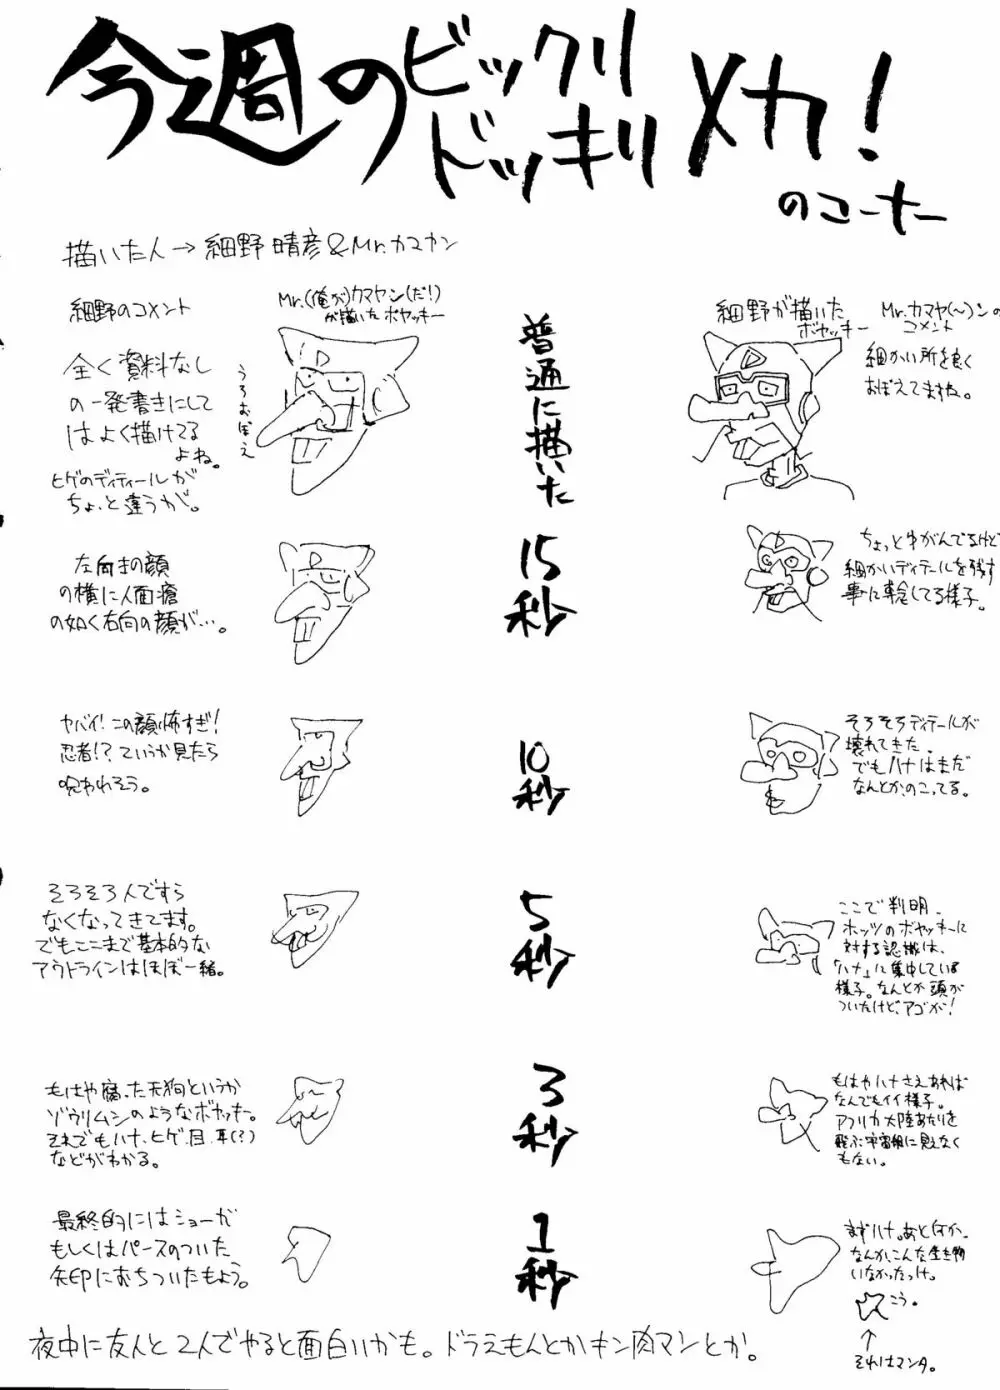 今週のビックリ
ドッキリ
メカ!
のコーナー
描いた人→細野晴彦&Mr.カマヤン
細野のコメント
Mr.(俺が)カマヤン(だ!)
が描いたボヤッキー
うろおぼえ
全く資料なし
の一発書きにして
はよく描けてる
よね。
ヒゲのディティールが
ちょっと違うが。
普通に描いた
細野が描いた
ボヤッキー
Mr.カマヤ(〜)ンの
コメント
細かい所を良く
おぼえてますね。
左向きの顔
の横に人面瘡
の如く右向の顔が…。
15
秒
ちょっとゆがんでるけど
細かいディテールを残す
事に専念してる様子。
ヤバイ!この顔怖すぎ!
忍者!?ていうか見たら
呪われそう。
10
秒
そろそろディテールが
壊れてきた。
でもハナはまだ
なんとかのこってる。
そろそろ人ですら
なくなってきてます。
でもここまで基本的な
アウトラインはほぼ一緒。
5
秒
ここで判明。
ホッツのボヤッキーに
対する認識は、
「ハナ」に集中している
様子。なんとか頭が
ついたけど、アゴが!
もはや腐った天狗というか
ゾウリムシのようなボヤッキー。
それでもハナ、ヒゲ、目、耳(?)
などがわかる。
3
秒
もはやハナさえあれば
なんでもイイ様子。
アフリカ大陸あたりを
飛ぶ宇宙船に見えなく
もない。
最終的にはショーガ
もしくはパースのついた
矢印におちついたもよう。
1
秒
まずハナ。あと何か。
なんか、こんな生き物
いなかったっけ。
こう。
↑
それはマンタ。
夜中に友人と2人でやると面白いかも。ドラえもんとかキン肉マンとか。